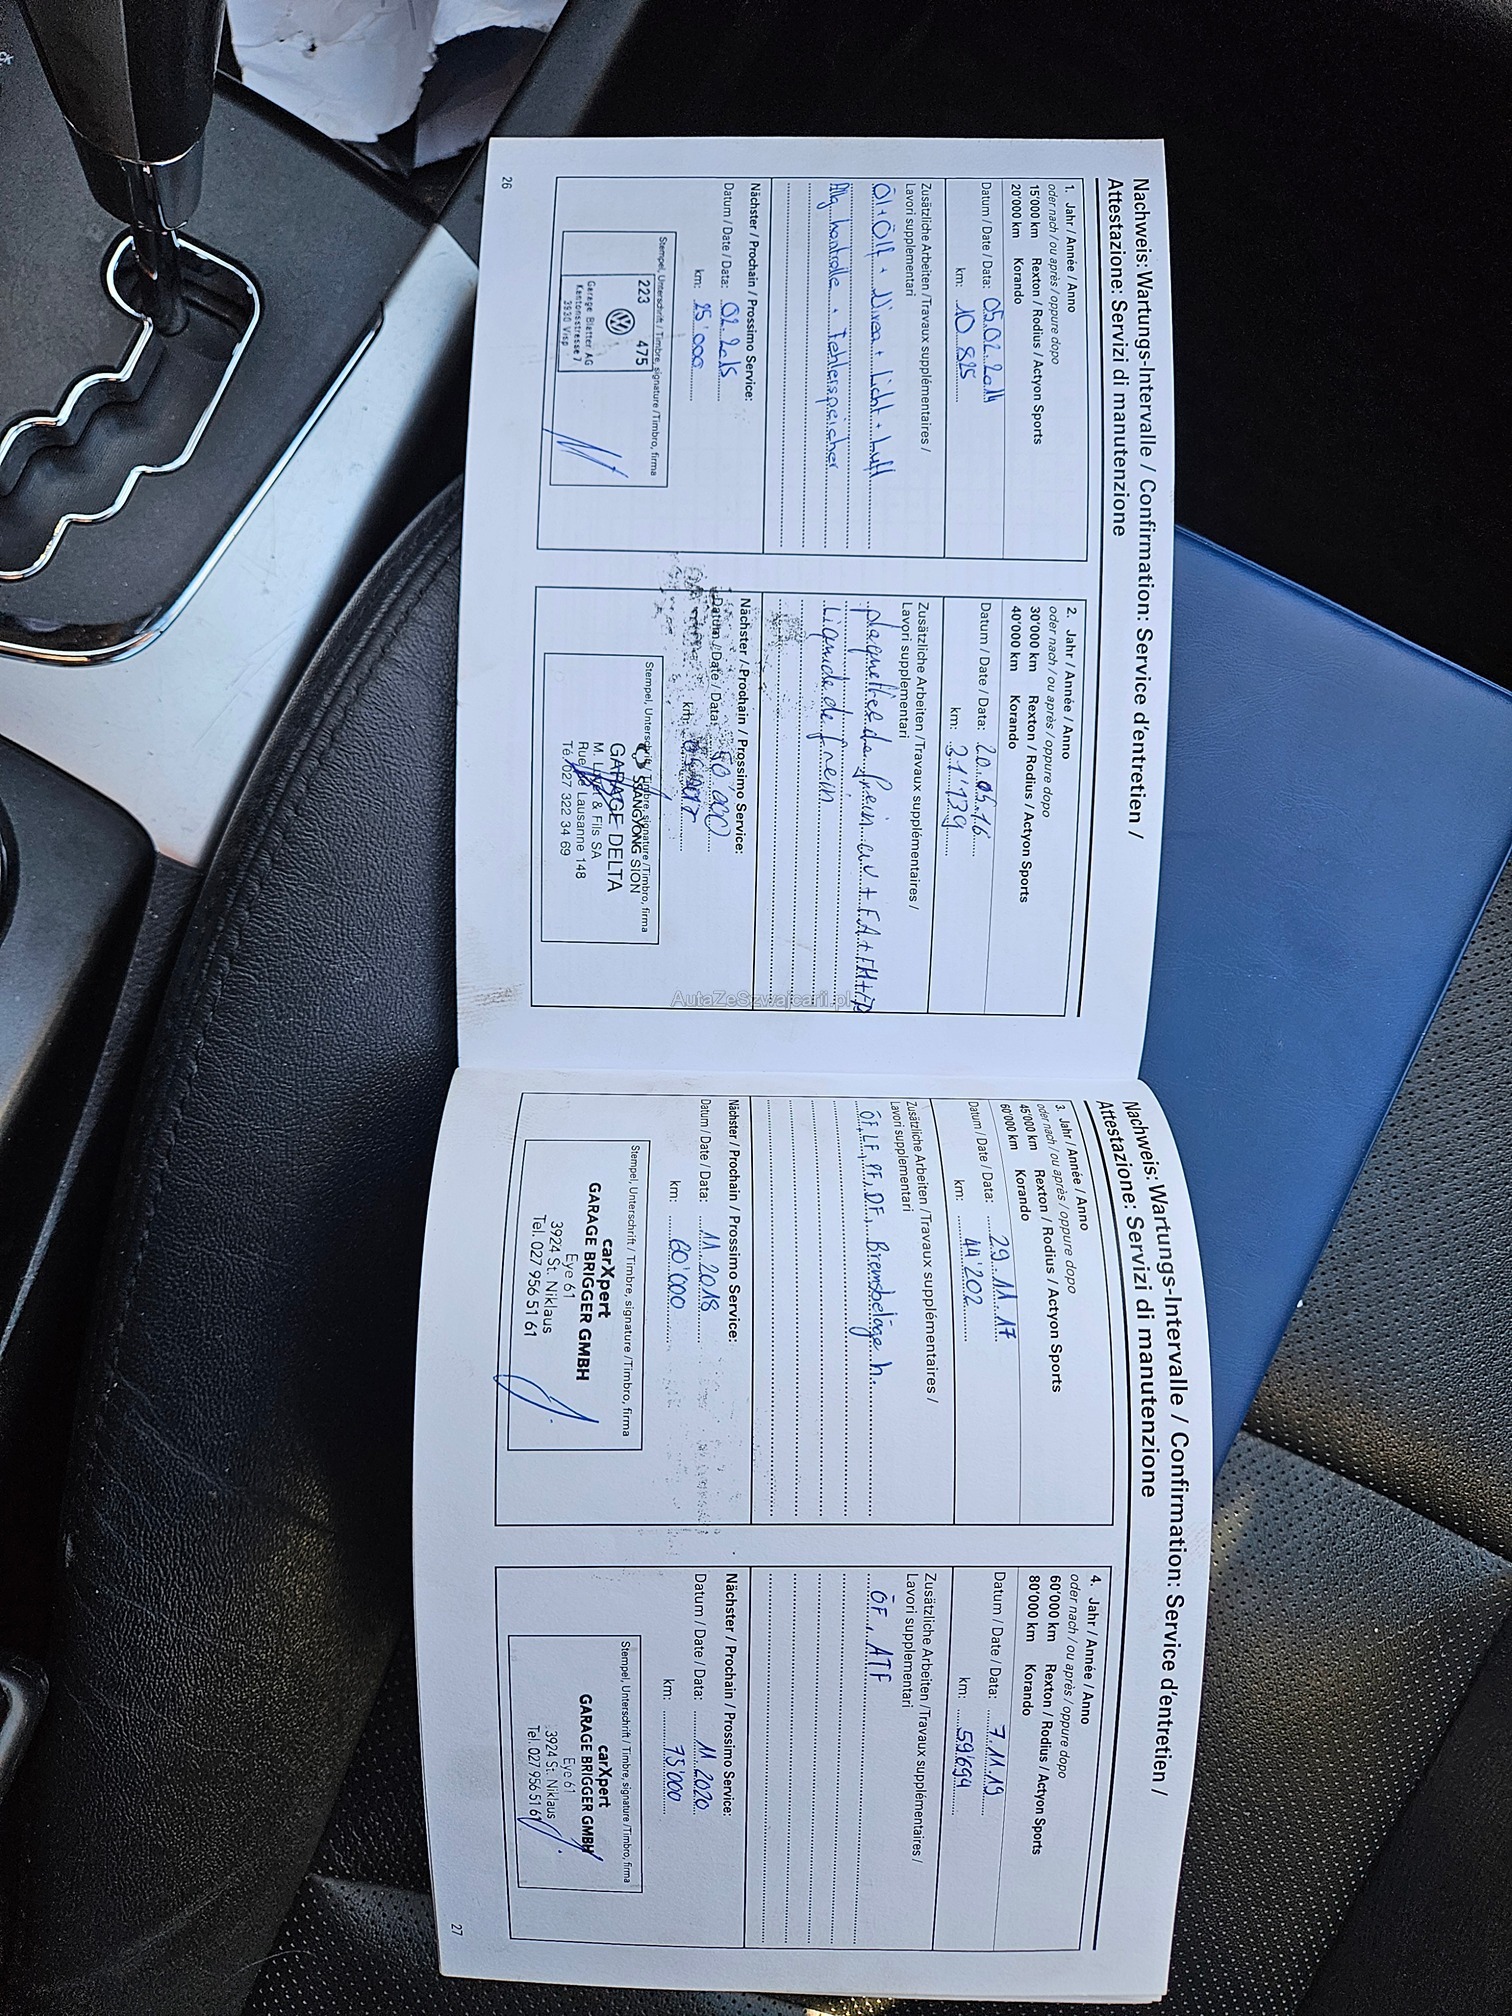 Nachweis: Wartungs-Intervalle / Confirmation: Service d'entretien /
Attestazione: Servizi di manutenzione
1. Jahr / Année / Anno
oder nach / ou après / oppure dopo
15'000 km Rexton / Rodius / Actyon Sports
20'000 km Korando
Datum / Date / Data: 05.02.2014
km: 10'825
Zusätzliche Arbeiten / Travaux supplémentaires /
Lavori supplementari
Öl + Ölf + Divea + Licht + Luft
Allg kontrolle + Fehlerspeicher
Nächster / Prochain / Prossimo Service:
Datum / Date / Data: 02.2015
km: 25'000
Stempel, Unterschrift / Timbre, signature / Timbro, firma
223 475
Garage Blatter AG
Kantonsstrasse 7
3930 Visp
26
2. Jahr / Année / Anno
oder nach / ou après / oppure dopo
30'000 km Rexton / Rodius / Actyon Sports
40'000 km Korando
Datum / Date / Data: 20.05.16
km: 31'139
Zusätzliche Arbeiten / Travaux supplémentaires /
Lavori supplementari
plaquettes de frein av + F.A + FH +
Liquide de frein
Nächster / Prochain / Prossimo Service:
Datum / Date / Data:
km:
Stempel, Unterschrift / Timbre, signature / Timbro, firma
SSANGYONG SION
GARAGE DELTA
M. & Fils SA
Rue de Lausanne 148
Tél. 027 322 34 69
AutaZeSzwajcarii.pl
Nachweis: Wartungs-Intervalle / Confirmation: Service d'entretien /
Attestazione: Servizi di manutenzione
3. Jahr / Année / Anno
oder nach / ou après / oppure dopo
45'000 km Rexton / Rodius / Actyon Sports
60'000 km Korando
Datum / Date / Data: 29.11.17
km: 44'202
Zusätzliche Arbeiten / Travaux supplémentaires /
Lavori supplementari
ÖF, LF, PF, DF, Bremsbeläge h.
Nächster / Prochain / Prossimo Service:
Datum / Date / Data: 11.2018
km: 60'000
Stempel, Unterschrift / Timbre, signature / Timbro, firma
carXpert
GARAGE BRIGGER GMBH
Eye 61
3924 St. Niklaus
Tel. 027 956 51 61
4. Jahr / Année / Anno
oder nach / ou après / oppure dopo
60'000 km Rexton / Rodius / Actyon Sports
80'000 km Korando
Datum / Date / Data: 7.11.19
km: 59'694
Zusätzliche Arbeiten / Travaux supplémentaires /
Lavori supplementari
ÖF, ATF
Nächster / Prochain / Prossimo Service:
Datum / Date / Data: 11.2020
km: 75'000
Stempel, Unterschrift / Timbre, signature / Timbro, firma
carXpert
GARAGE BRIGGER GMBH
Eye 61
3924 St. Niklaus
Tel. 027 956 51 61
27